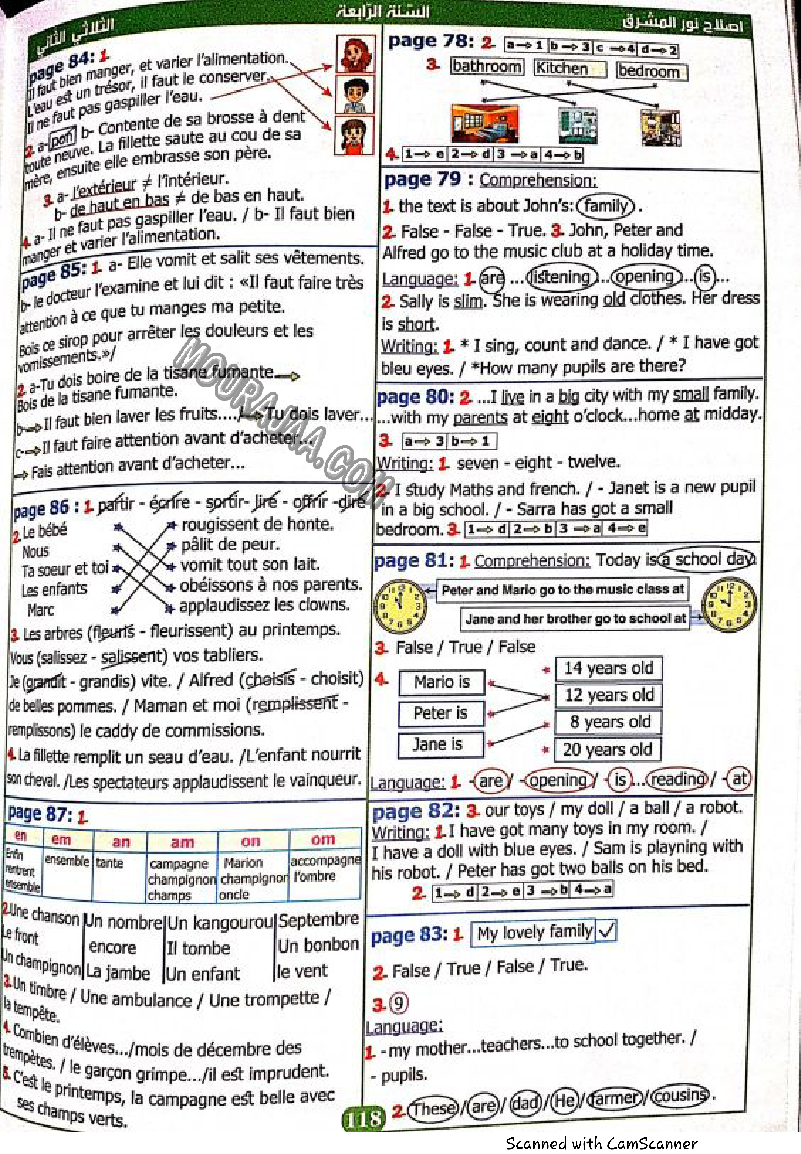 الثلاثي الثاني
السنة الرابعة
اصلاح نور المشرق
page 84: 1.
Il faut bien manger, et varier l'alimentation.
L'eau est un trésor, il faut le conserver.
Il ne faut pas gaspiller l'eau.
2. a- pon b- Contente de sa brosse à dent
toute neuve. La fillette saute au cou de sa
mère, ensuite elle embrasse son père.
3. a- l'extérieur ≠ l'intérieur.
b- de haut en bas ≠ de bas en haut.
4. a- Il ne faut pas gaspiller l'eau. / b- Il faut bien
manger et varier l'alimentation.
page 85: 1. a- Elle vomit et salit ses vêtements.
b- le docteur l'examine et lui dit : «Il faut faire très
attention à ce que tu manges ma petite.
Bois ce sirop pour arrêter les douleurs et les
vomissements.»/
2. a-Tu dois boire de la tisane fumante ⇒
Bois de la tisane fumante.
b-⇒Il faut bien laver les fruits..../⇒Tu dois laver...
c-⇒Il faut faire attention avant d'acheter...
⇒ Fais attention avant d'acheter...
MOURAJAA.COM
page 86 : 1. partir - écrire - sortir- lire - offrir -dire
2. Le bébé rougissent de honte.
Nous pâlit de peur.
Ta soeur et toi vomit tout son lait.
Les enfants obéissons à nos parents.
Marc applaudissez les clowns.
3. Les arbres (fleuris - fleurissent) au printemps.
Vous (salissez - salissent) vos tabliers.
Je (grandit - grandis) vite. / Alfred (choisis - choisit)
de belles pommes. / Maman et moi (remplissent -
remplissons) le caddy de commissions.
4. La fillette remplit un seau d'eau. /L'enfant nourrit
son cheval. /Les spectateurs applaudissent le vainqueur.
page 87: 1.
en em an am on om
Enfin ensemble tante campagne Marion accompagne
rentrent champignon champignon l'ombre
ensemble champs oncle
2.Une chanson Un nombre Un kangourou Septembre
Le front encore Il tombe Un bonbon
Un champignon La jambe Un enfant le vent
3. Un timbre / Une ambulance / Une trompette /
la tempête.
4. Combien d'élèves.../mois de décembre des
trempètes. / le garçon grimpe.../il est imprudent.
5. C'est le printemps, la campagne est belle avec
ses champs verts.
page 78: 2. a⇒1 b⇒3 c⇒4 d⇒2
3. bathroom Kitchen bedroom
4. 1⇒e 2⇒d 3⇒a 4⇒b
page 79 : Comprehension:
1. the text is about John's: family .
2. False - False - True. 3. John, Peter and
Alfred go to the music club at a holiday time.
Language: 1. are ... listening ... opening ... is ...
2. Sally is slim. She is wearing old clothes. Her dress
is short.
Writing: 1. * I sing, count and dance. / * I have got
bleu eyes. / *How many pupils are there?
page 80: 2. ...I live in a big city with my small family.
...with my parents at eight o'clock...home at midday.
3. a⇒3 b⇒1
Writing: 1. seven - eight - twelve.
2. I study Maths and french. / - Janet is a new pupil
in a big school. / - Sarra has got a small
bedroom. 3. 1⇒d 2⇒b 3⇒a 4⇒e
page 81: 1. Comprehension: Today is a school day.
Peter and Mario go to the music class at
Jane and her brother go to school at
3. False / True / False
4. Mario is 14 years old
Peter is 12 years old
Jane is 8 years old
20 years old
Language: 1. -are / -opening / -is...reading / -at
page 82: 3. our toys / my doll / a ball / a robot.
Writing: 1. I have got many toys in my room. /
I have a doll with blue eyes. / Sam is playning with
his robot. / Peter has got two balls on his bed.
2. 1⇒d 2⇒e 3⇒b 4⇒a
page 83: 1. My lovely family ✓
2. False / True / False / True.
3. 9
Language:
1. -my mother...teachers...to school together. /
- pupils.
2. These / are / dad / He / farmer / cousins .
118
Scanned with CamScanner